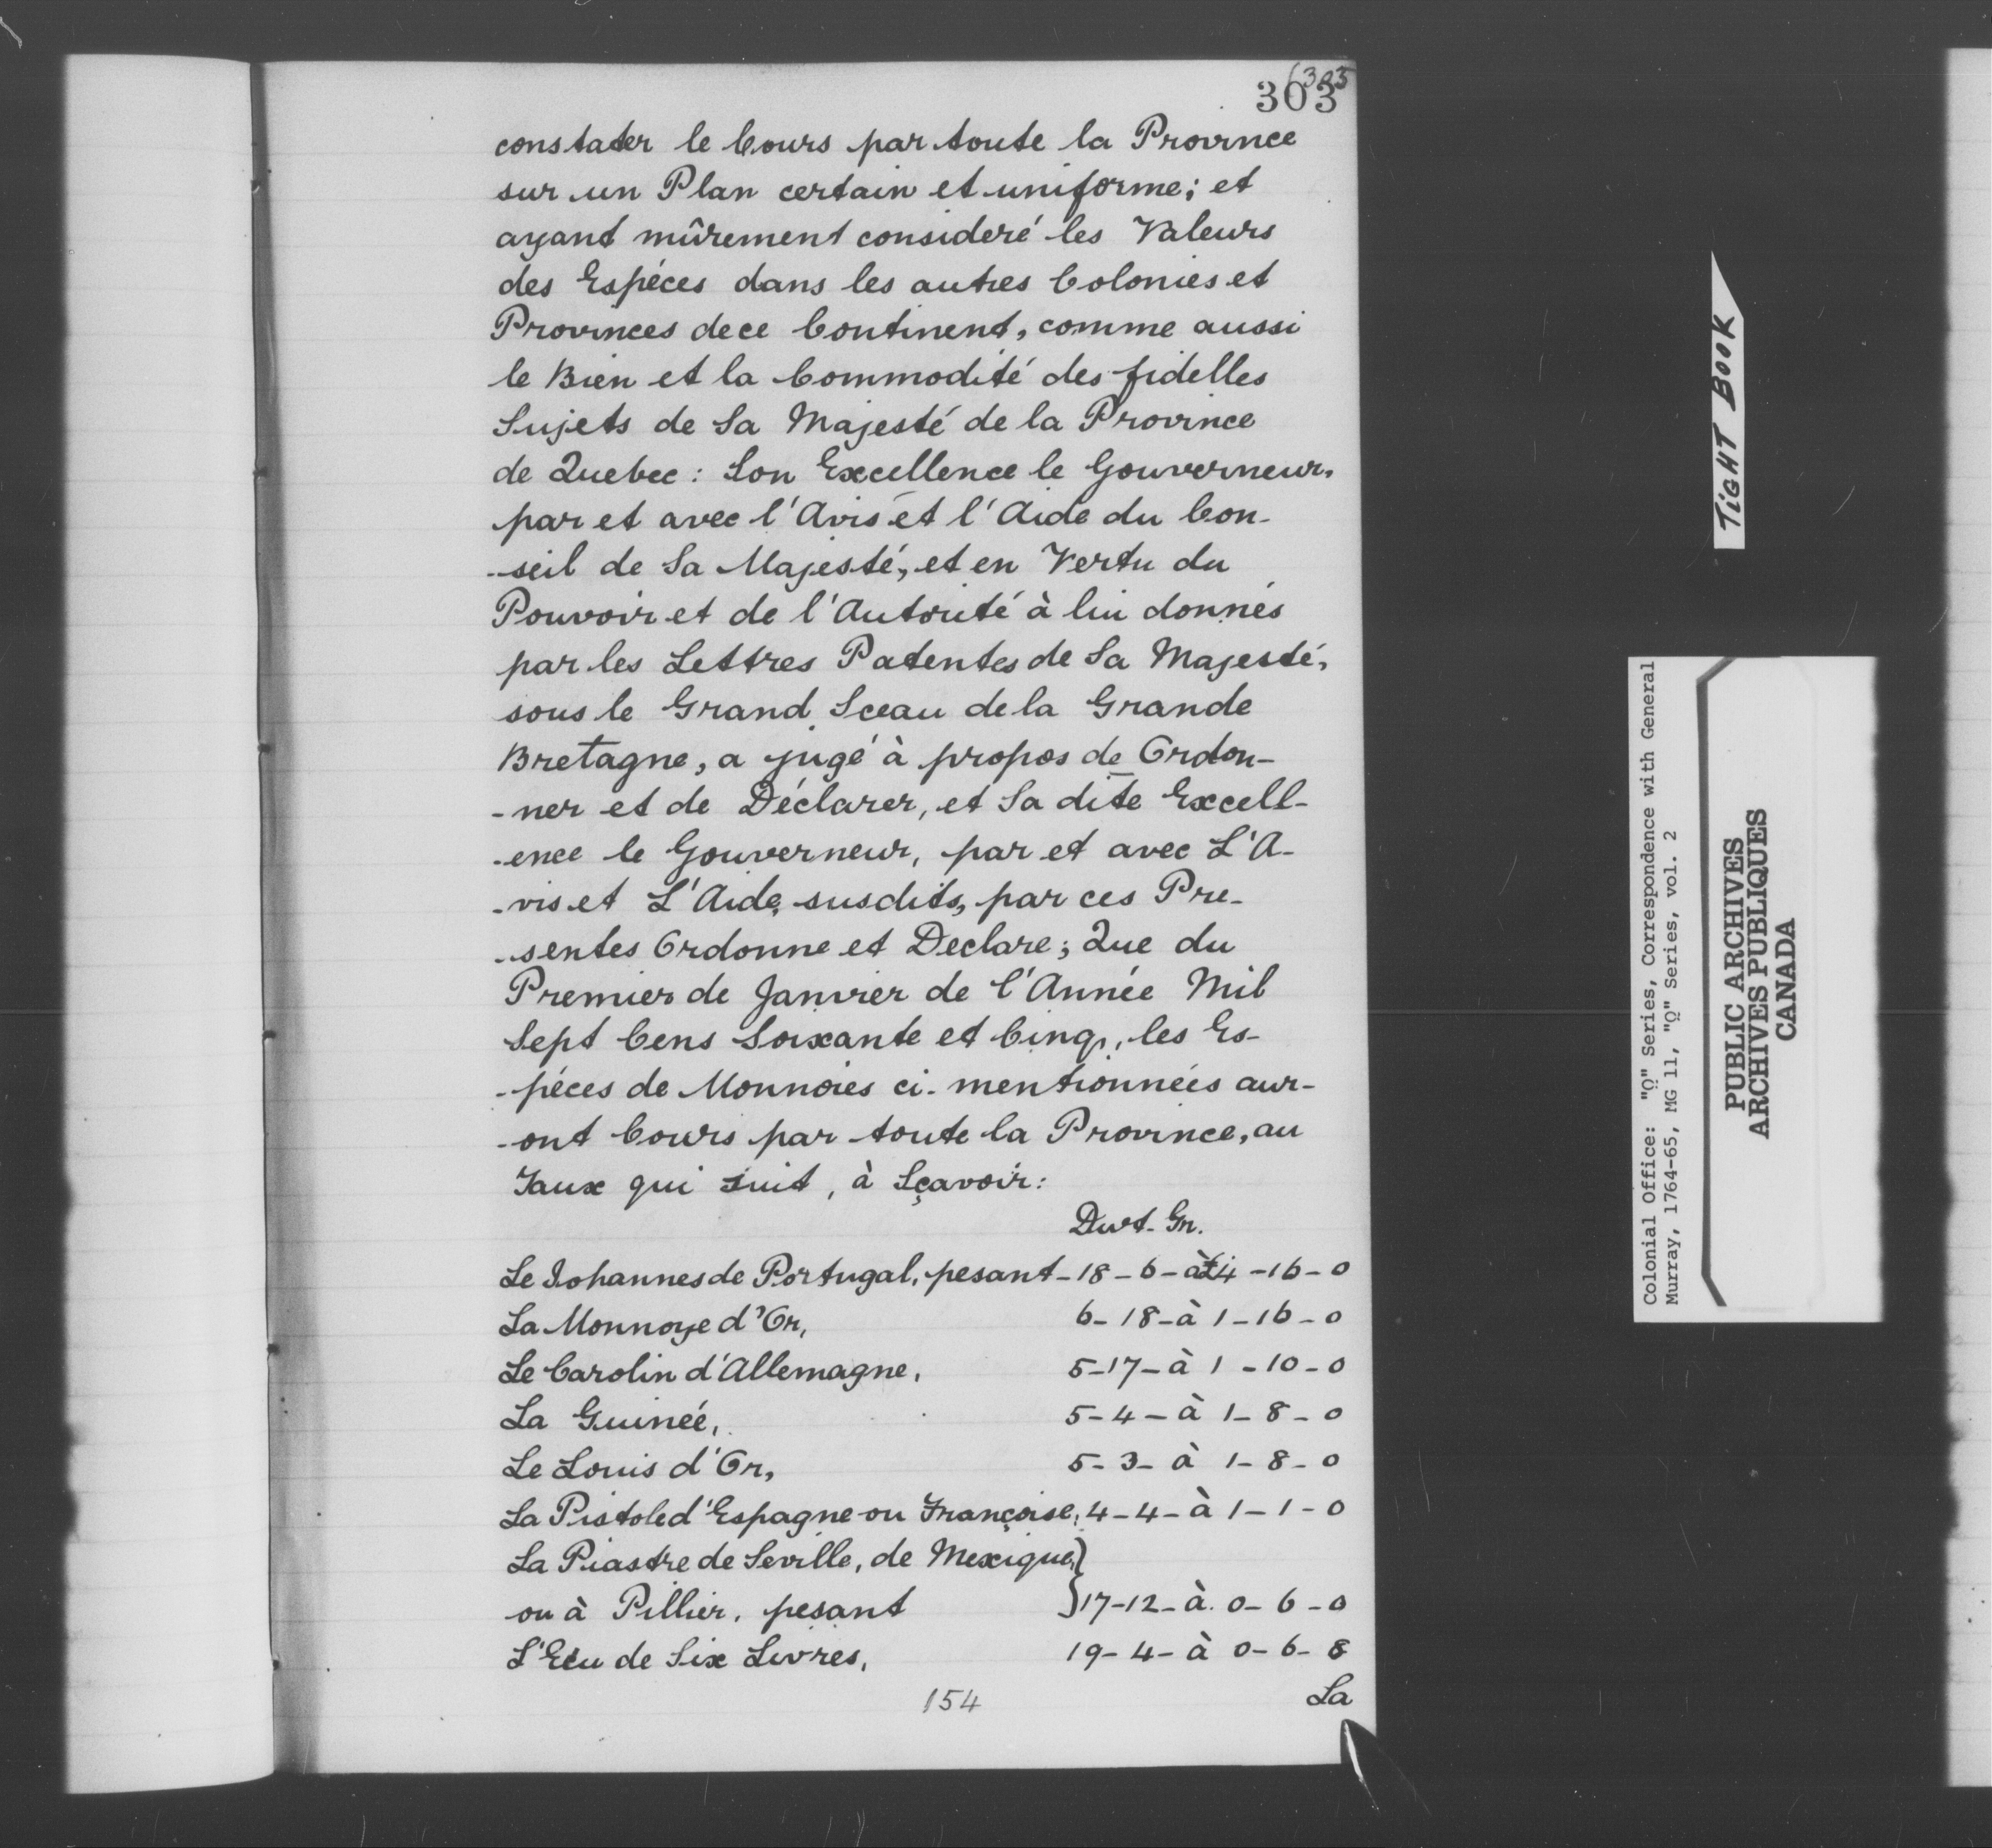 303
(303
constater le Cours par toute la Province
sur un Plan certain et uniforme; et
ayant mûrement consideré les Valeurs
des Espéces dans les autres Colonies et
Provinces de ce Continent, comme aussi
le Bien et la Commodité des fidelles
Sujets de Sa Majesté de la Province
de Quebec: Son Excellence le Gouverneur,
par et avec l'Avis et l'Aide du Con-
-seil de Sa Majesté, et en Vertu du
Pouvoir et de l'Autorité à lui donnés
par les Lettres Patentes de Sa Majesté,
sous le Grand Sceau de la Grande
Bretagne, a jugé à propos de Ordon-
-ner et de Déclarer, et Sa dite Excell-
-ence le Gouverneur, par et avec L'A-
-vis et L'Aide susdits, par ces Pre-
-sentes Ordonne et Declare; Que du
Premier de Janvier de l'Année Mil
Sept Cens Soixante et Cinq, les Es-
-péces de Monnoies ci-mentionnées aur-
-ont Cours par toute la Province, au
Taux qui suit, à Sçavoir:
Dwt. Gn.
Le Johannes de Portugal, pesant - 18 - 6 - à £4 - 16 - 0
La Monnoye d'Or, 6 - 18 - à 1 - 16 - 0
Le Carolin d'Allemagne, 5 - 17 - à 1 - 10 - 0
La Guineé, 5 - 4 - à 1 - 8 - 0
Le Louis d'Or, 5 - 3 - à 1 - 8 - 0
La Pistole d'Espagne ou Françoise, 4 - 4 - à 1 - 1 - 0
La Piastre de Seville, de Mexique,}
ou à Pillier, pesant } 17 - 12 - à 0 - 6 - 0
L'Ecu de Six Livres, 19 - 4 - à 0 - 6 - 8
La
154
TiGHT BOOK
Colonial Office: "Q" Series, Correspondence with General
Murray, 1764-65, MG 11, "Q" Series, vol. 2
PUBLIC ARCHIVES
ARCHIVES PUBLIQUES
CANADA